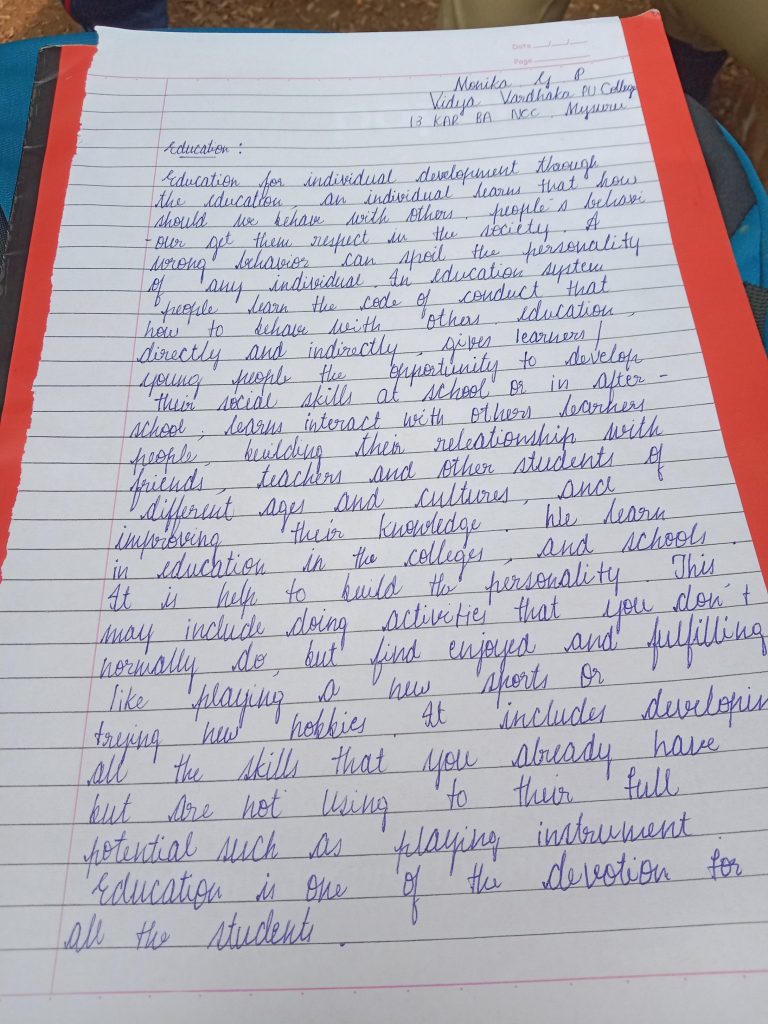 Date __/__/__
Page
Monika G P
Vidya Vardhaka PU College
13 KAR BA NCC Mysuru
Education :
Education for individual development through
the education, an individual learns that how
should we behave with others. people's behavi
-our get them respect in the society. A
wrong behavior can spoil the personality
of any individual. In education system
people learn the code of conduct that
how to behave with others. education,
directly and indirectly, gives learners/
young people the opportunity to develop
their social skills at school or in after -
school, learns interact with others learners
people, building their releationship with
friends, teachers and other students of
different ages and cultures, and
improving their knowledge. We learn
in education in the colleges, and schools.
It is help to build the personality. This
may include doing activities that you don't
normally do, but find enjoyed and fulfilling
like playing a new sports or
trying new hobbies. It includes developin
all the skills that you already have
but are not using to their full
potential such as playing instrument.
Education is one of the devotion for
all the students.